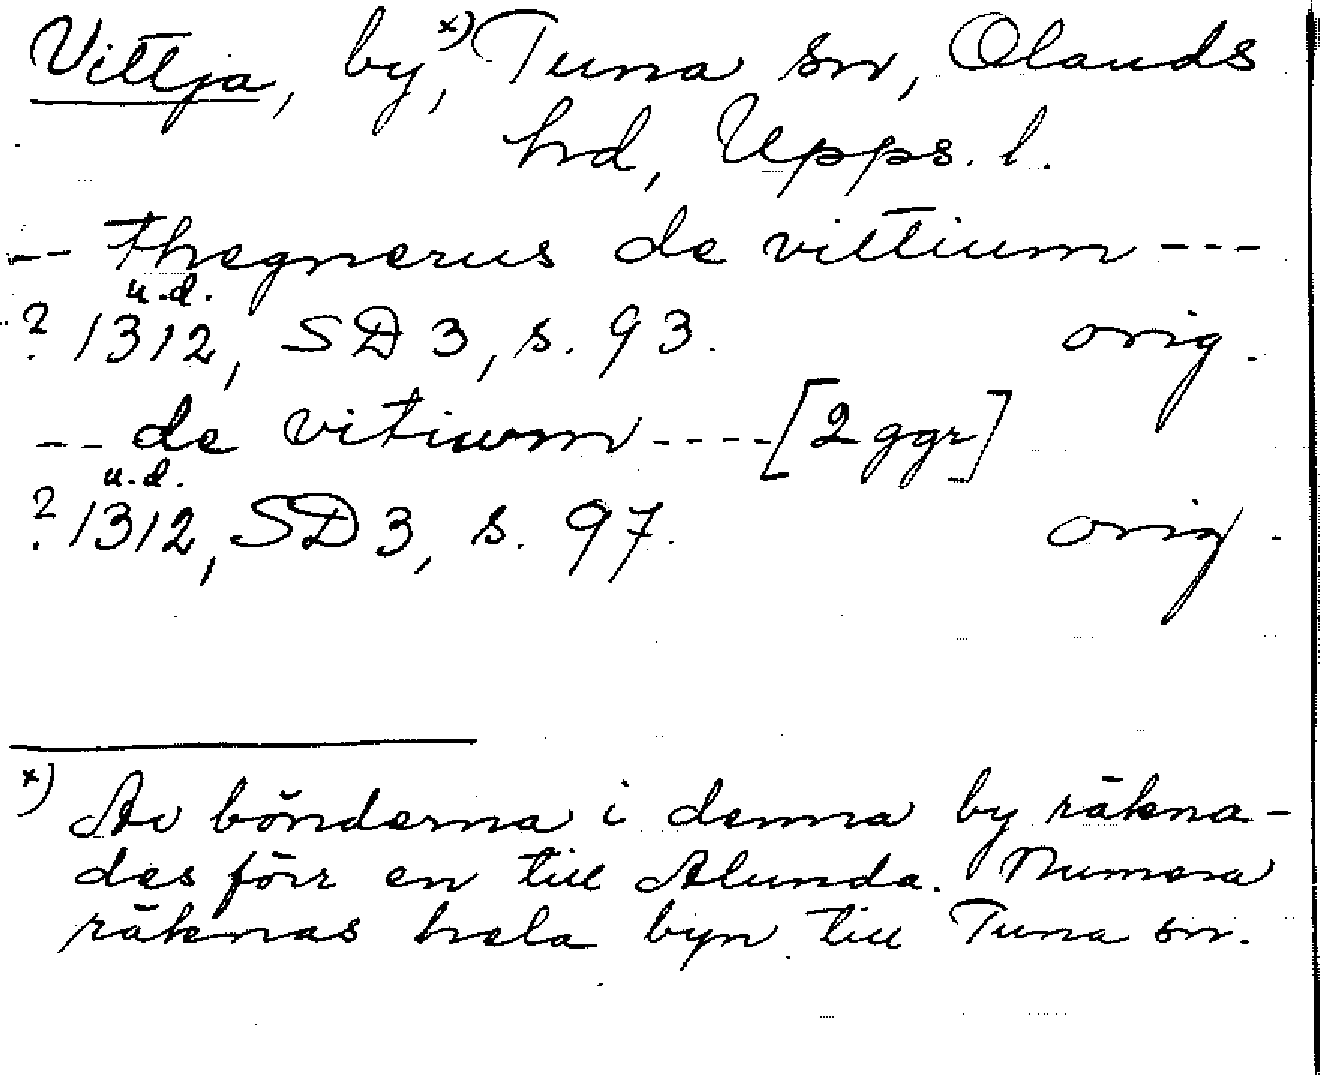 Vittja, by,ˣ⁾ Tuna sn, Olands
hd, Upps. l.
-- thegnerus de vittium ---
u.d.
? 1312, SD 3, s. 93. orig.
-- de vitium ---- [2 ggr]
u.d.
? 1312, SD 3, s. 97. orig.
x) Av bönderna i denna by räkna-
des förr en till Alunda. Numera
räknas hela byn till Tuna sn.